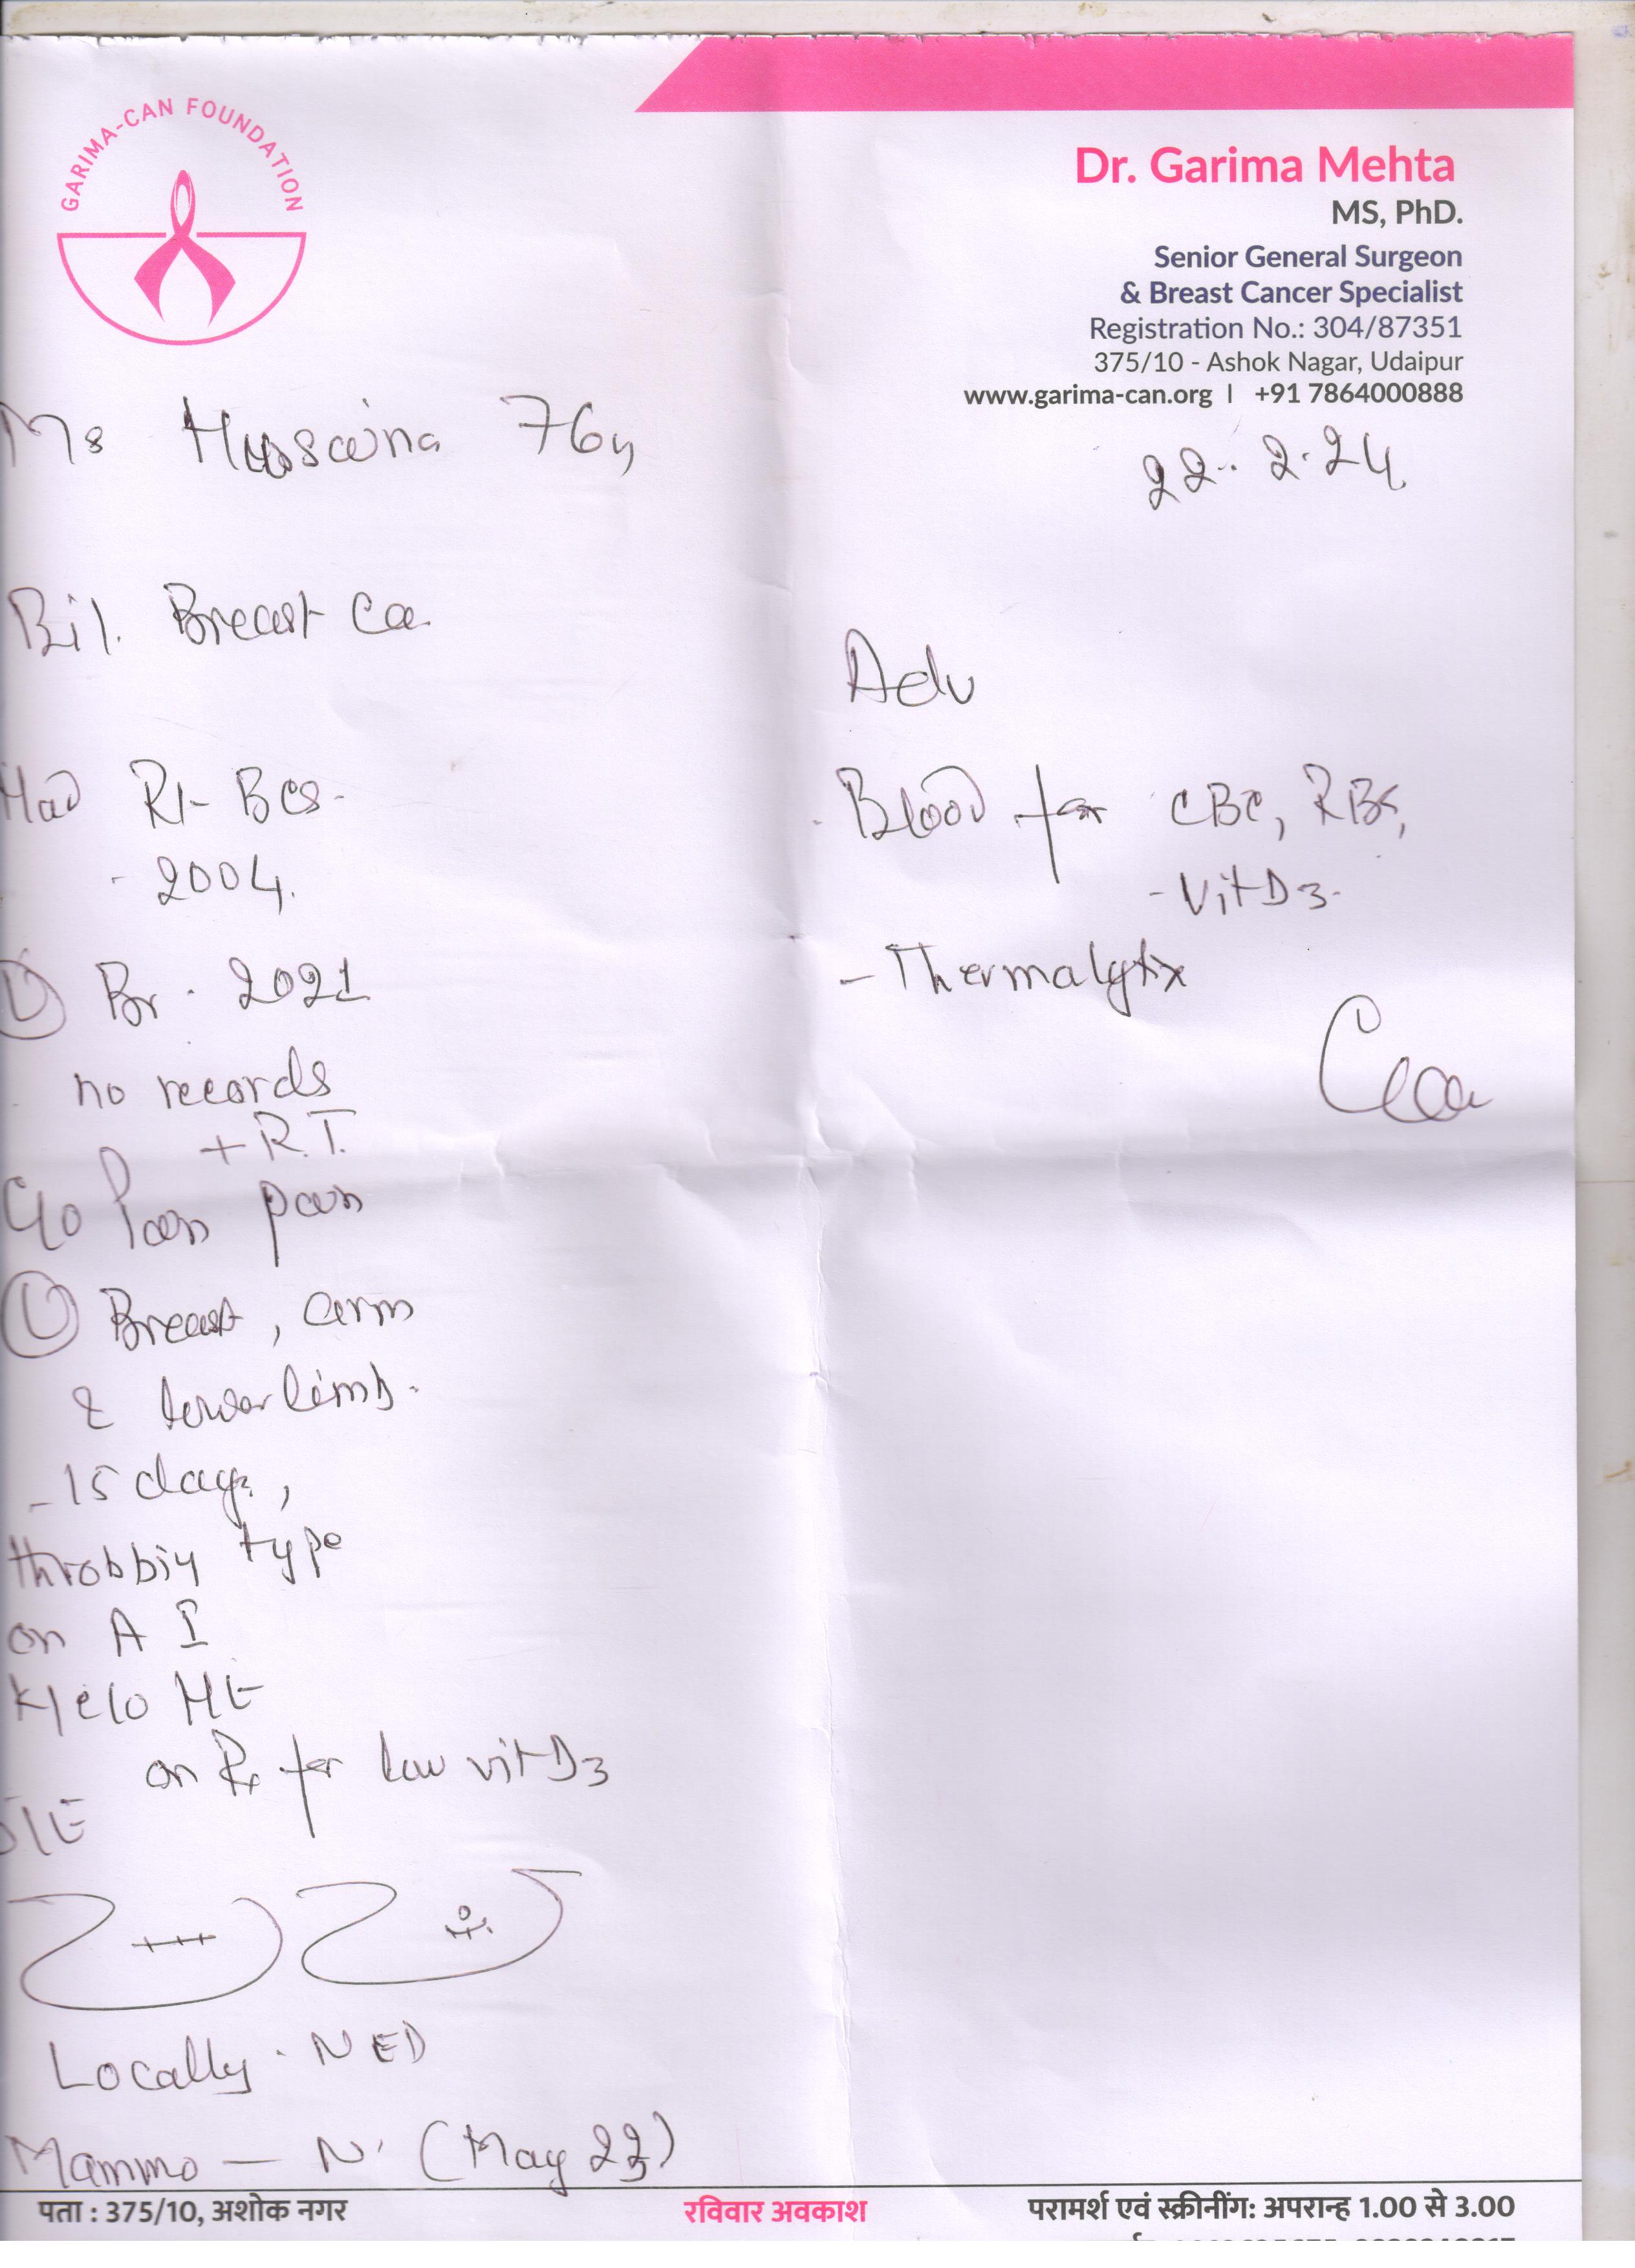 GARIMA-CAN FOUNDATION
Dr. Garima Mehta
MS, PhD.
Senior General Surgeon
& Breast Cancer Specialist
Registration No.: 304/87351
375/10 - Ashok Nagar, Udaipur
www.garima-can.org | +91 7864000888
Ms Hussaina 76y
22.2.24
Bil. Breast Ca.
Had Rt BCS-
- 2004.
(L) Br. 2021
no records
+ R.T.
C/o Pain pain
(L) Breast, arm
& lower limb.
- 15 days,
throbbing type
on A I
K/c/o HT
on Rx for low vit D3
O/E
Locally - NED
Mammo - N (May 23)
Adv
- Blood for CBC, RBS,
- Vit D3 -
- Thermalytix
पता : 375/10, अशोक नगर
रविवार अवकाश
परामर्श एवं स्क्रीनींग: अपरान्ह 1.00 से 3.00